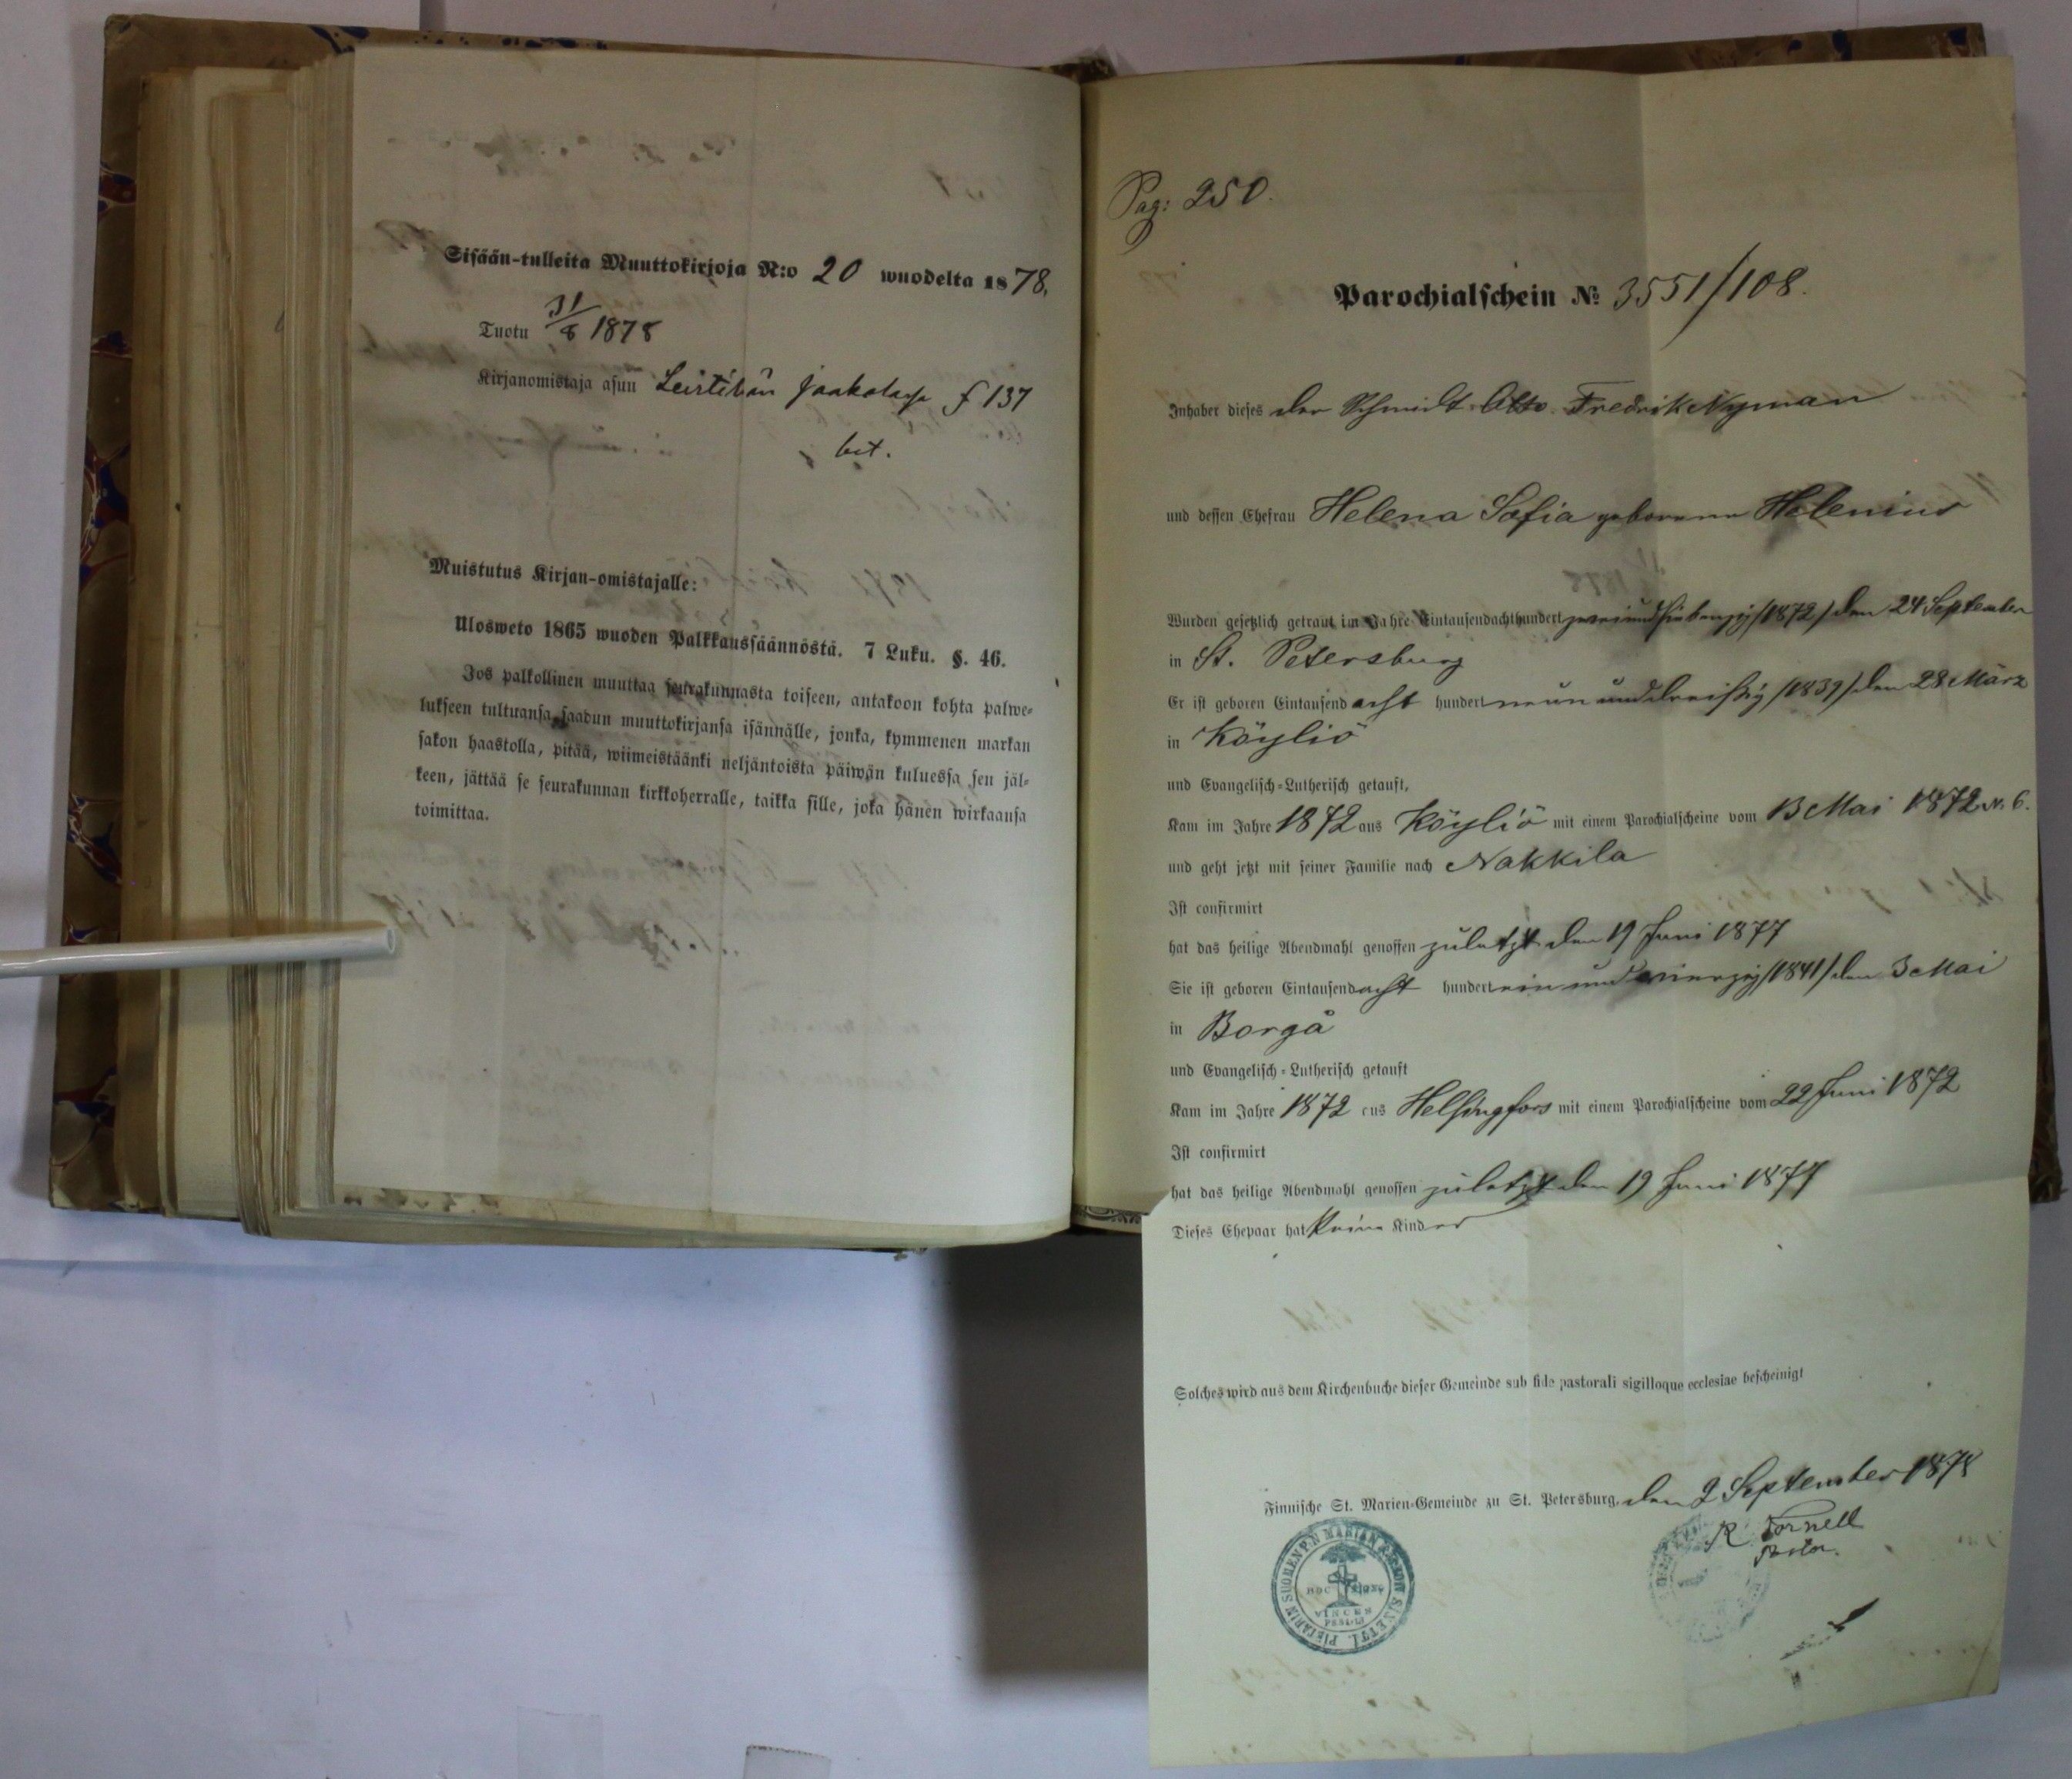 Sisään-tulleita Muuttokirjoja N:o 20 wuodelta 1878.
Tuotu 31/8 1878
Kirjanomistaja asuu Leistilän Jaakolassa f 137
bet.
Muistutus Kirjan-omistajalle:
Ulosweto 1865 wuoden Palkkaussäännöstä. 7 Luku. §. 46.
Jos palkollinen muuttaa seurakunnasta toiseen, antakoon kohta palwe-
lukseen tultuansa saadun muuttokirjansa isännälle, jonka, kymmenen markan
sakon haastolla, pitää, wiimeistäänki neljäntoista päiwän kuluessa sen jäl-
keen, jättää se seurakunnan kirkkoherralle, taikka sille, joka hänen wirkaansa
toimittaa.
Pag: 250.
Parochialschein № 3551/108.
Inhaber dieses der Schmidt Otto Fredrik Nyman
und dessen Ehefrau Helena Sofia geborene Helenius
Wurden gesetzlich getraut im Jahre Eintausendachthundert zweiundsiebenzig /1872/ den 24 September
in St. Petersburg
Er ist geboren Eintausend acht hundert neun und dreißig /1839/ den 28 März
in Köyliö
und Evangelisch-Lutherisch getauft,
Kam im Jahre 1872 aus Köyliö mit einem Parochialscheine vom 13 Mai 1872 N. 6.
und geht jetzt mit seiner Familie nach Nakkila
Ist confirmirt
hat das heilige Abendmahl genossen zuletzt den 19 Juni 1877
Sie ist geboren Eintausend acht hundert ein und vierzig /1841/ den 3 Mai
in Borgå
und Evangelisch-Lutherisch getauft
Kam im Jahre 1872 aus Helsingfors mit einem Parochialscheine vom 22 Juni 1872
Ist confirmirt
hat das heilige Abendmahl genossen zuletzt den 19 Juni 1877
Dieses Ehepaar hat keine Kinder
Solches wird aus dem Kirchenbuche dieser Gemeinde sub fide pastorali sigilloque ecclesiae bescheinigt
Finnische St. Marien-Gemeinde zu St. Petersburg, den 2 September 1878
R. Tornell
Pastor.
PIETARIN SUOMEN P:N MARIAN SINETTI.
HOC SIGNO
VINCES